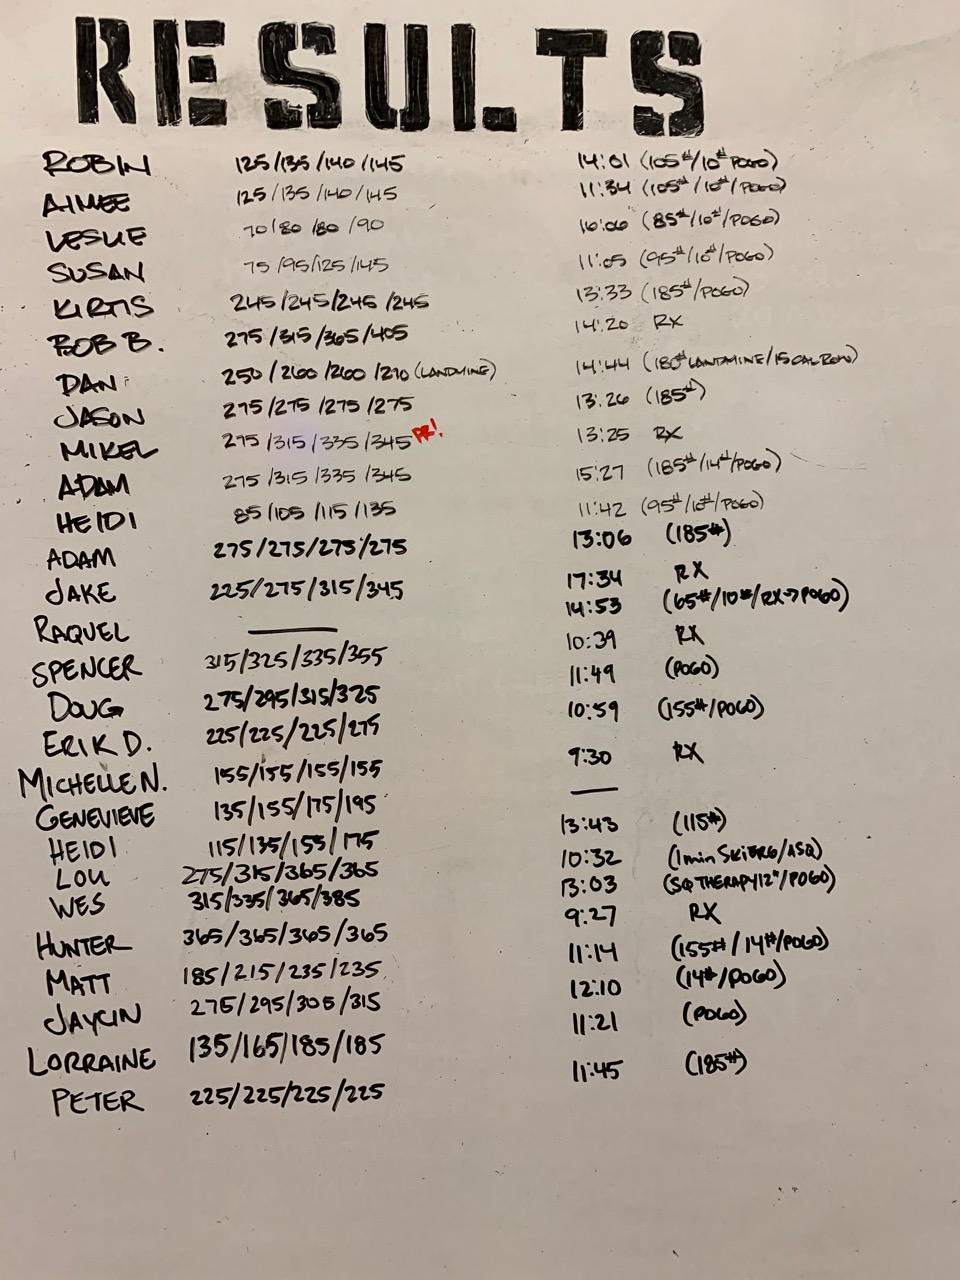 RESULTS
ROBIN 125/135/140/145 14:01 (105#/10# POGO)
AIMEE 125/135/140/145 11:34 (105#/10#/POGO)
LESLIE 70/80/80/90 16:06 (85#/10#/POGO)
SUSAN 75/95/125/145 11:05 (95#/10#/POGO)
KIRTIS 245/245/245/245 13:33 (185#/POGO)
BOB B. 275/315/365/405 14:20 RX
DAN 250/260/260/270 (LANDMINE) 14:44 (180# LANDMINE/15 CAL ROW)
JASON 275/275/275/275 13:26 (185#)
MIKEL 275/315/335/345 PR! 13:25 RX
ADAM 275/315/335/345 15:27 (185#/14#/POGO)
HEIDI 85/105/115/135 11:42 (95#/10#/POGO)
ADAM 275/275/275/275 13:06 (185#)
JAKE 225/275/315/345 17:34 RX
RAQUEL — 14:53 (65#/10#/RX→POGO)
SPENCER 315/325/335/355 10:39 RX
DOUG 275/295/315/325 11:49 (POGO)
ERIK D. 225/225/225/275 10:59 (155#/POGO)
MICHELLE N. 155/155/155/155 9:30 RX
GENEVIEVE 135/155/175/195 —
HEIDI 115/135/155/175 13:43 (115#)
LOU 275/315/365/365 10:32 (1 min SKIERG/ASQ)
WES 315/335/365/385 13:03 (SQ THERAPY 12"/POGO)
HUNTER 365/365/365/365 9:27 RX
MATT 185/215/235/235 11:14 (155#/14#/POGO)
JAYCIN 275/295/305/315 12:10 (14#/POGO)
LORRAINE 135/165/185/185 11:21 (POGO)
PETER 225/225/225/225 11:45 (185#)